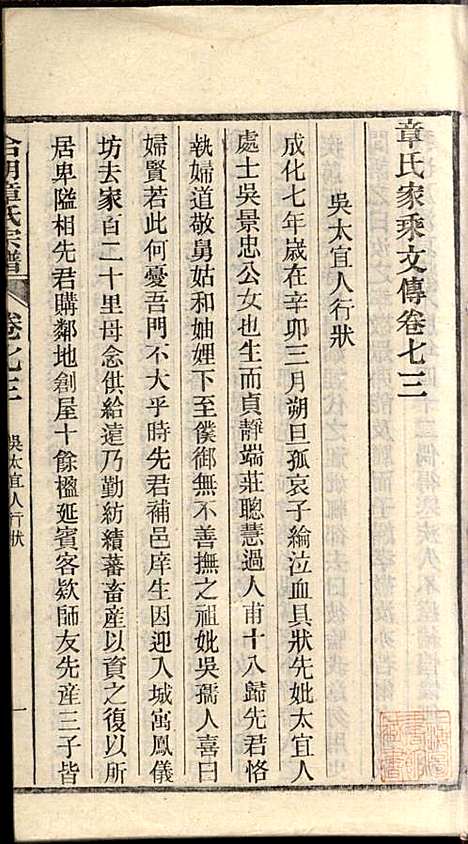 章氏家乘文傳卷七三
吳太宜人行狀
成化七年歲在辛卯三月朔旦孤哀子綸泣血具狀先妣太宜人
處士吳景忠公女也生而貞靜端莊聰慧過人甫十八歸先君恪
執婦道敬舅姑和妯娌下至僕御無不善撫之祖妣吳孺人喜曰
婦賢若此何憂吾門不大乎時先君補邑庠生因迎入城寓鳳儀
坊去家百二十里母念供給遠乃勤紡績蕃畜產以資之復以所
居卑隘相先君購鄰地創屋十餘楹延賓客欵師友先產三子皆
章氏宗譜
卷七三
吳太宜人行狀
一